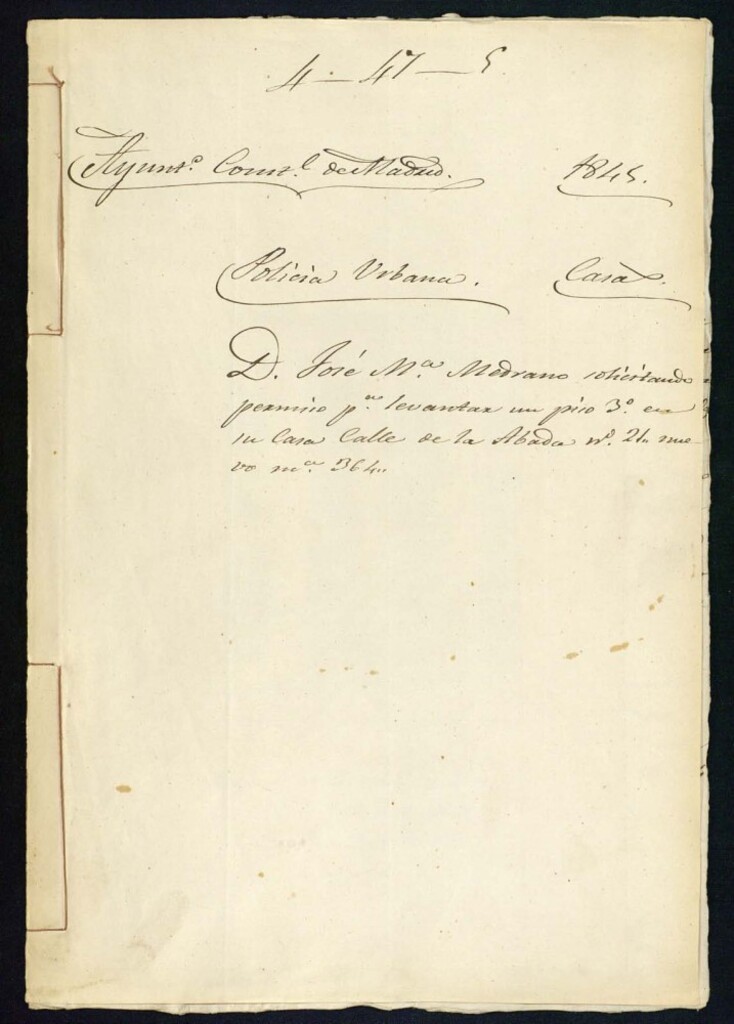 4-47-5
Ayunt.º Const.l de Madrid. 1845.
Policia Urbana. Casas.
D. José M.ª Medrano solicitando
permiso p.ª levantar un piso 3.º en
su Casa Calle de la Abada nº. 21 nue-
vo mª. 364